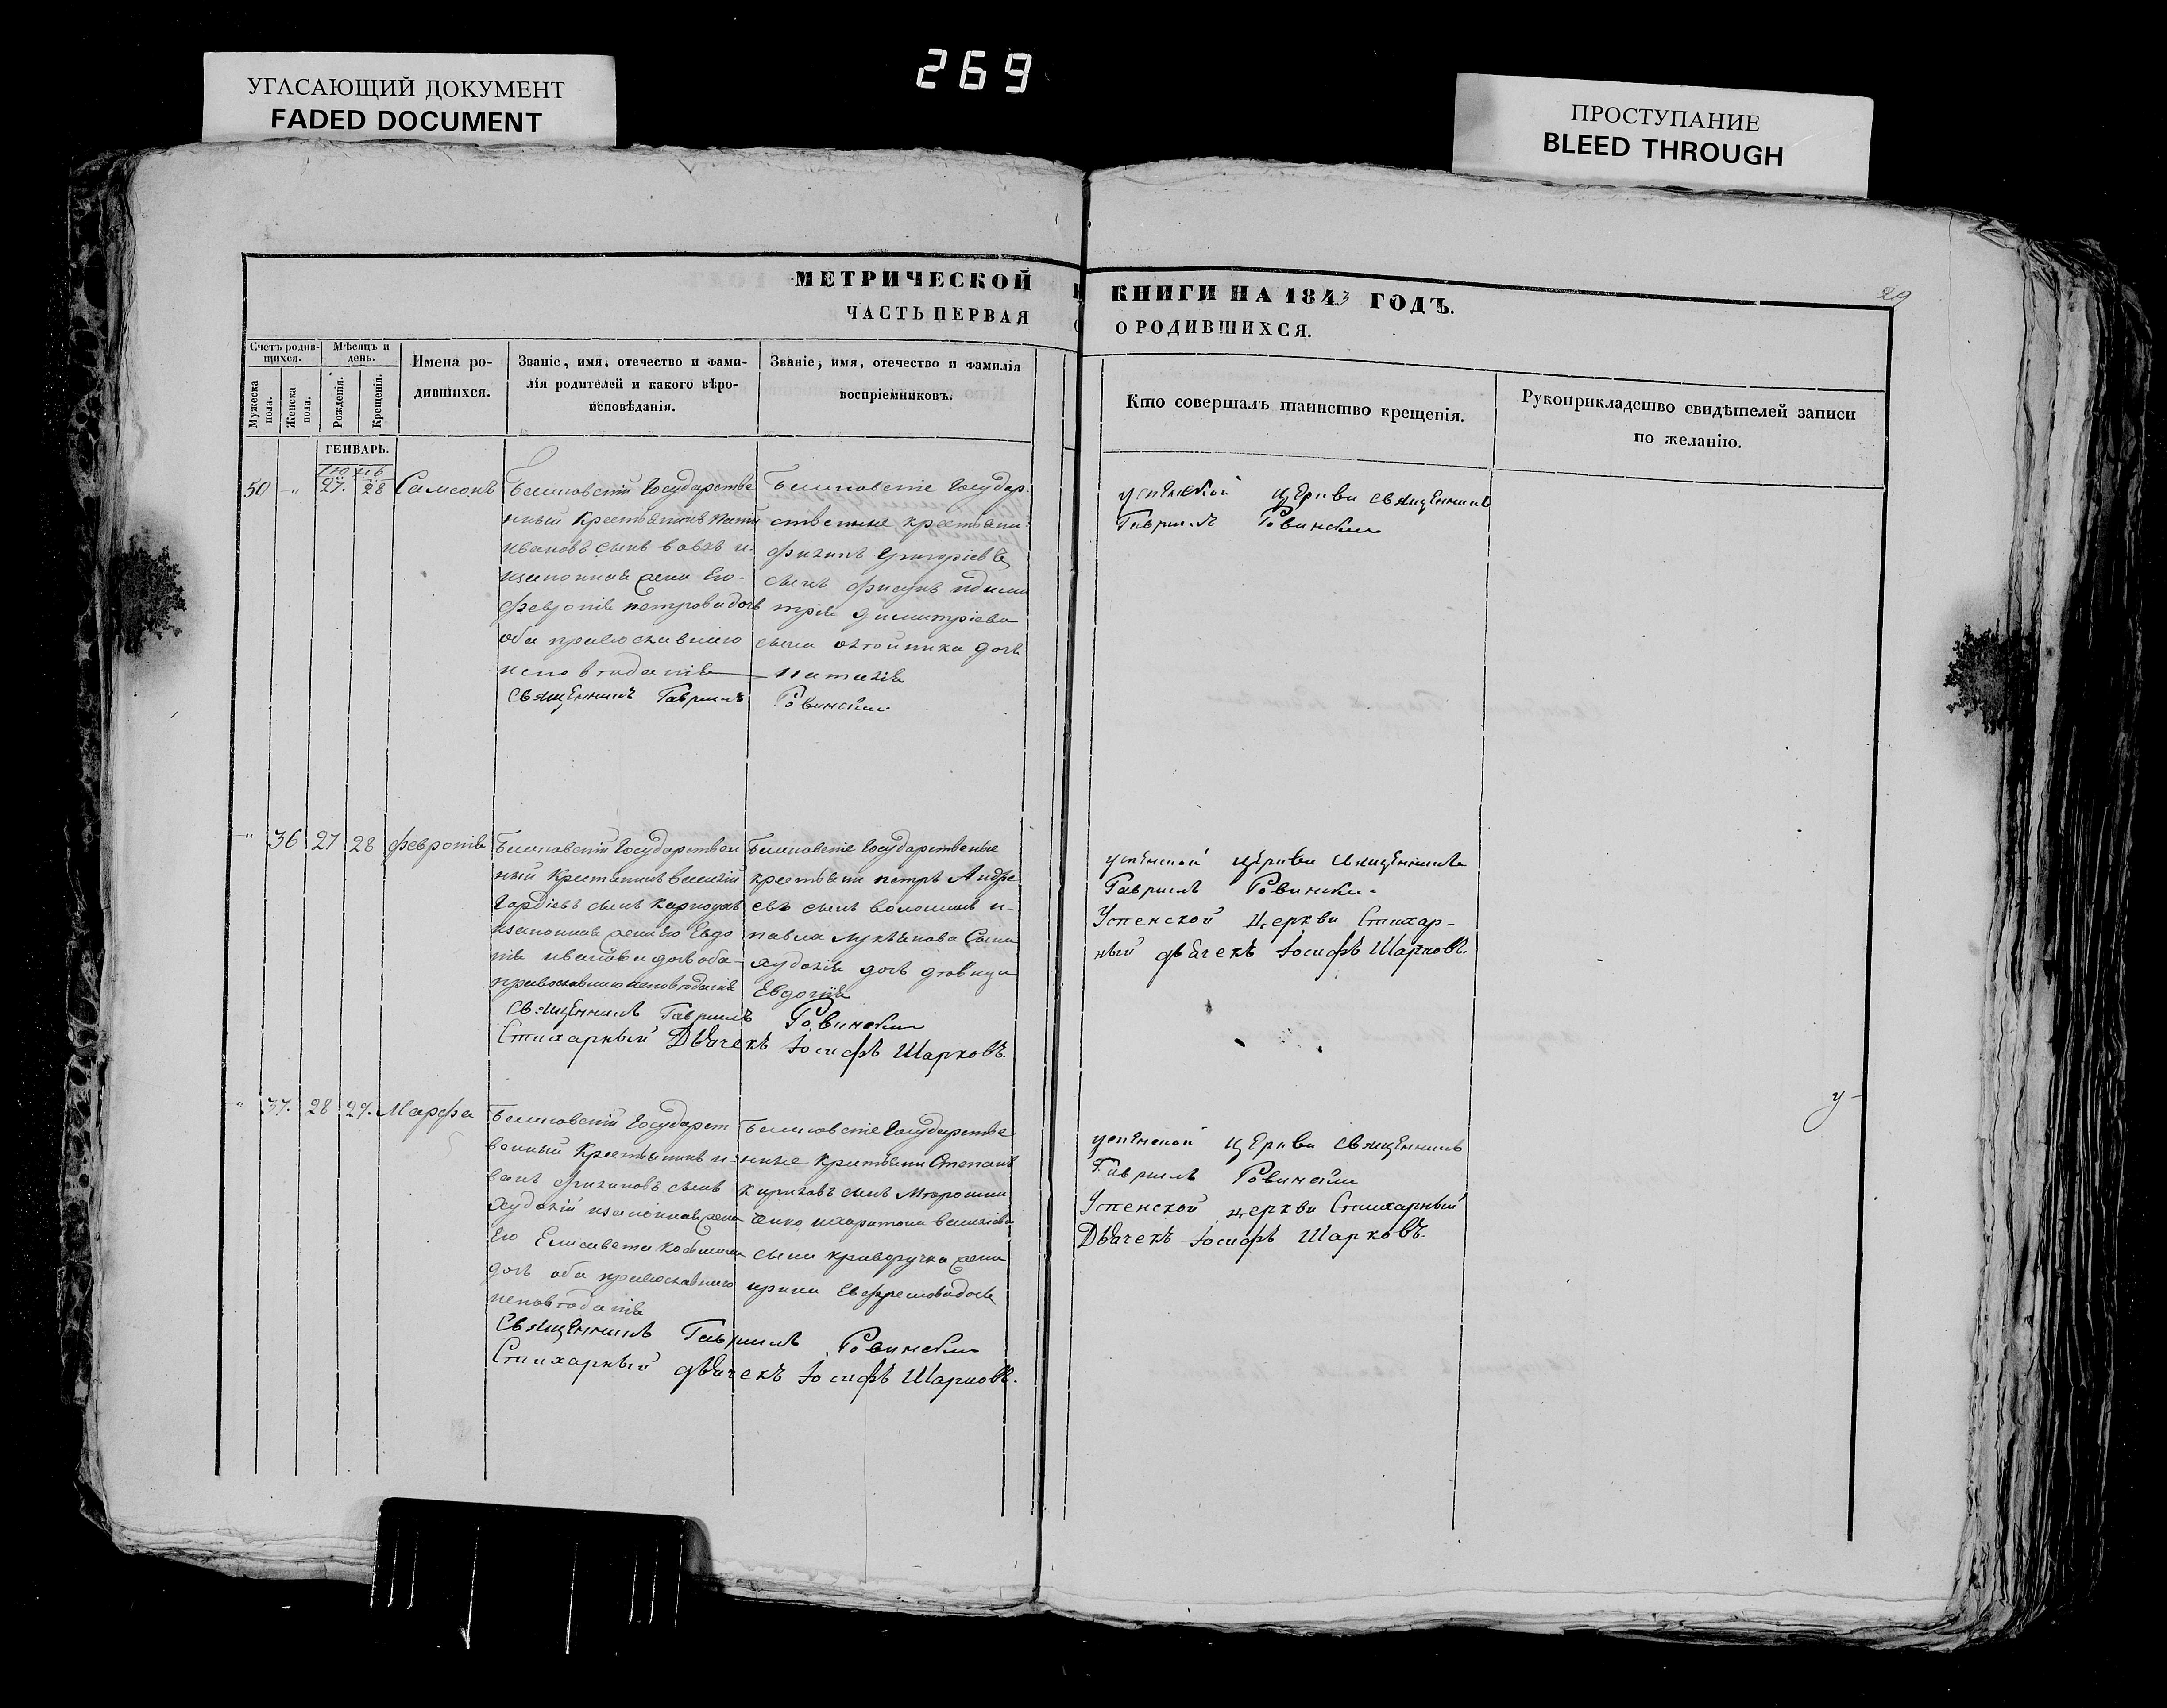 УГАСАЮЩИЙ ДОКУМЕНТ
FADED DOCUMENT
269
ПРОСТУПАНИЕ
BLEED THROUGH
29
МЕТРИЧЕСКОЙ
ЧАСТЬ ПЕРВАЯ
КНИГИ НА 1843 ГОДЪ.
О РОДИВШИХСЯ.
Счетъ родив-
щихся.
Мужеска
пола.
Женска
пола.
Мѣсяцъ и
день.
Рожденія.
Крещенія.
Имена ро-
дившихся.
Званіе, имя, отечество и фами-
лія родителей и какого вѣро-
исповѣданія.
Званіе, имя, отечество и фамилія
воспріемниковъ.
Кто совершалъ таинство крещенія.
Рукоприкладство свидѣтелей записи
по желанію.
ГЕНВАРЬ.
50 " 27. 28 Самсонъ
Государстве
нный Крестьянинъ
Ивановъ сынъ
законная жена Его
Февронія Петрова дочь
оба православнаго
исповѣданія
Священникъ Гавріилъ Ровинскій
Государ
ственные крестьяни
Филипъ Григоріевъ
сынъ
трія Димитріева
сына дочь
Наталія
Успенской церкви священникъ
Гавріилъ Ровинскій
" 36 27 28 Февронія
Государствен
ный Крестьянинъ Василій
Гордіевъ сынъ
законная жена его Евдо
кія Иванова дочь оба
православнаго исповѣданія
Священникъ Гавріилъ Ровинскій
Стихарный Дьячекъ Іосифъ Шарковъ.
Государственные
крестьяни Петръ Андре
евъ сынъ Волошинъ и
Павла Лукьянова Сына
Худолія дочь дѣвица
Евдокія
Успенской церкви священникъ
Гавріилъ Ровинскій
Успенской Церкви Стихар-
ный дьячекъ Іосифъ Шарковъ.
" 37. 28 29. Марфа
Государст
венный Крестьянинъ И-
ванъ Филиповъ сынъ
Худолій законная жена
Его Елисавета Косьмина
дочь оба православнаго
исповѣданія
Священникъ Гавріилъ Ровинскій
Стихарный дьячекъ Іосифъ Шарковъ.
Государстве
нные Крестьяни Степанъ
Кириловъ сынъ
енко и Харитона Василіева
сына Криворучка жена
Ирина Ефремова дочь
Успенской церкви священникъ
Гавріилъ Ровинскій
Успенской церкви Стихарный
Дьячекъ Іосифъ Шарковъ.